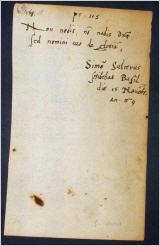 ps 115
Non nobis, nō nobis Dnē
sed nomini tuo da gloriā,
Simō Sulcerus
scribebat Basil.
die 15 Novēb.